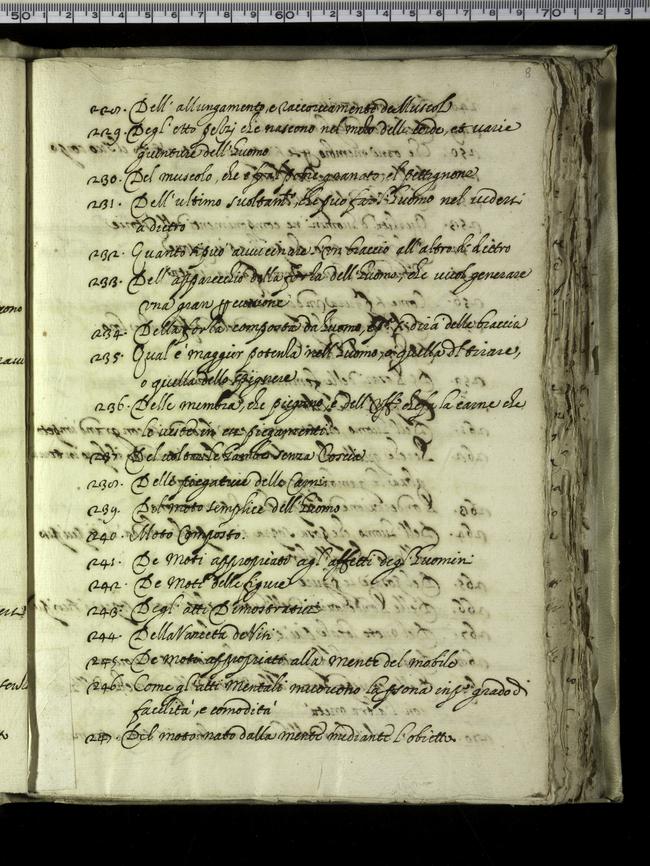 8
228. Dell' allungamento, e raccorciamento de Muscoli
229. Degl' otto pezzi che nascono nel mezo delle corde, et varie
giunture dell' huomo
230. Del muscolo, che è fra'l pomo granato, e'l pettignone
231. Dell' ultimo suoltam.to, che può far l'huomo nel vedersi
a dietro
232. Quanto si può avvicinare un braccio all' altro di dietro
233. Dell' apparecchio della forza dell' huomo, che vuol generare
una gran percussione
234. Della forza composta da huomo, et p.a si dirà delle braccia
235. Qual' è maggior potenza nell' huomo, o quella di tirare,
o quella dello spignere
236. Delle membra, che piegano, e dell' uff.o che fa la carne che
le veste in esse piegamenti
237. Del voltar le gambe senza Coscie
238. Delle piegature delle Carni
239. Del moto semplice dell' huomo
240. Moto Composto.
241. De Moti appropriati agl' affetti degl' huomini
242. De Moti delle figure
243. Degl' atti Dimostrativi
244. Della Varietà de Visi
245. De Moti appropriati alla mente del mobile
246. Come gl' atti Mentali muovono la p.sona in p.o grado di
facilità, e comodità
247. Del moto nato dalla mente mediante l' obietto.